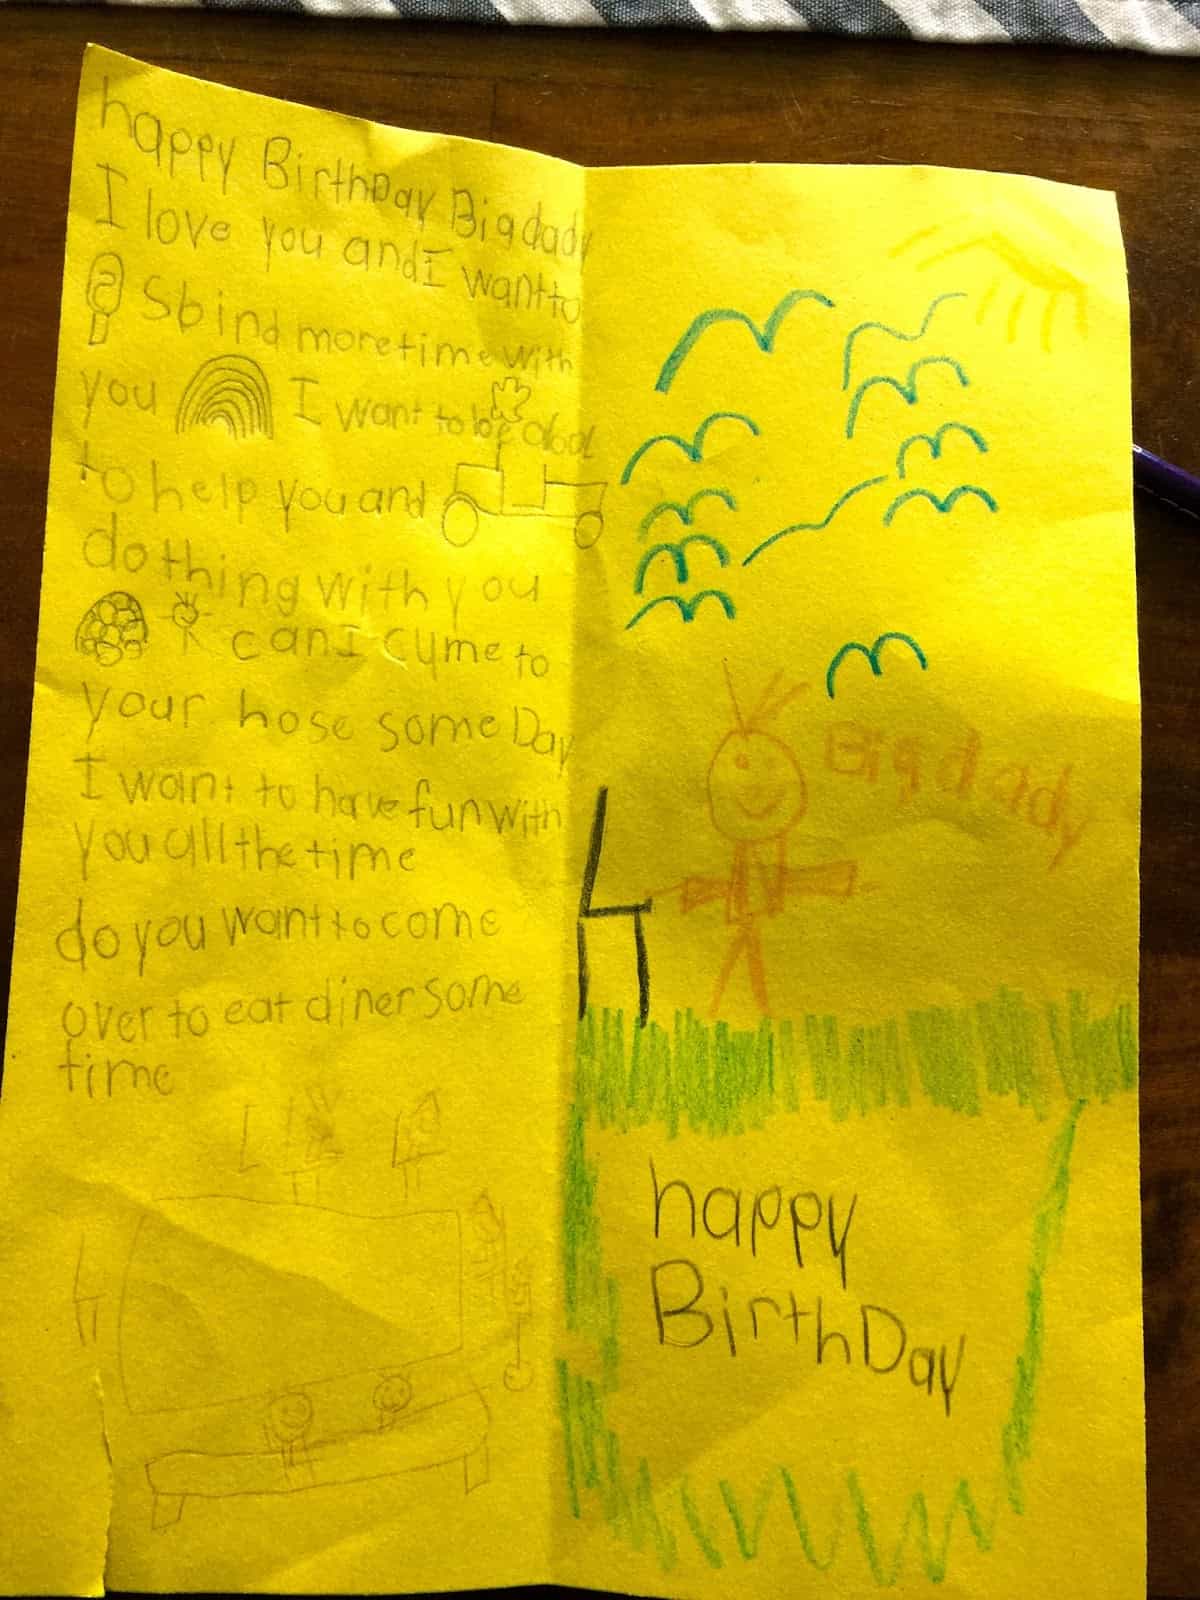 happy BirthDay Bigdady
I love you and I want to
Sbind more time with
you I want to be abol
to help you and
do thing with you
can I cyme to
your hose some Day
I want to have fun with
you all the time
do you want to come
over to eat diner some
time
Bigdady
happy
BirthDay